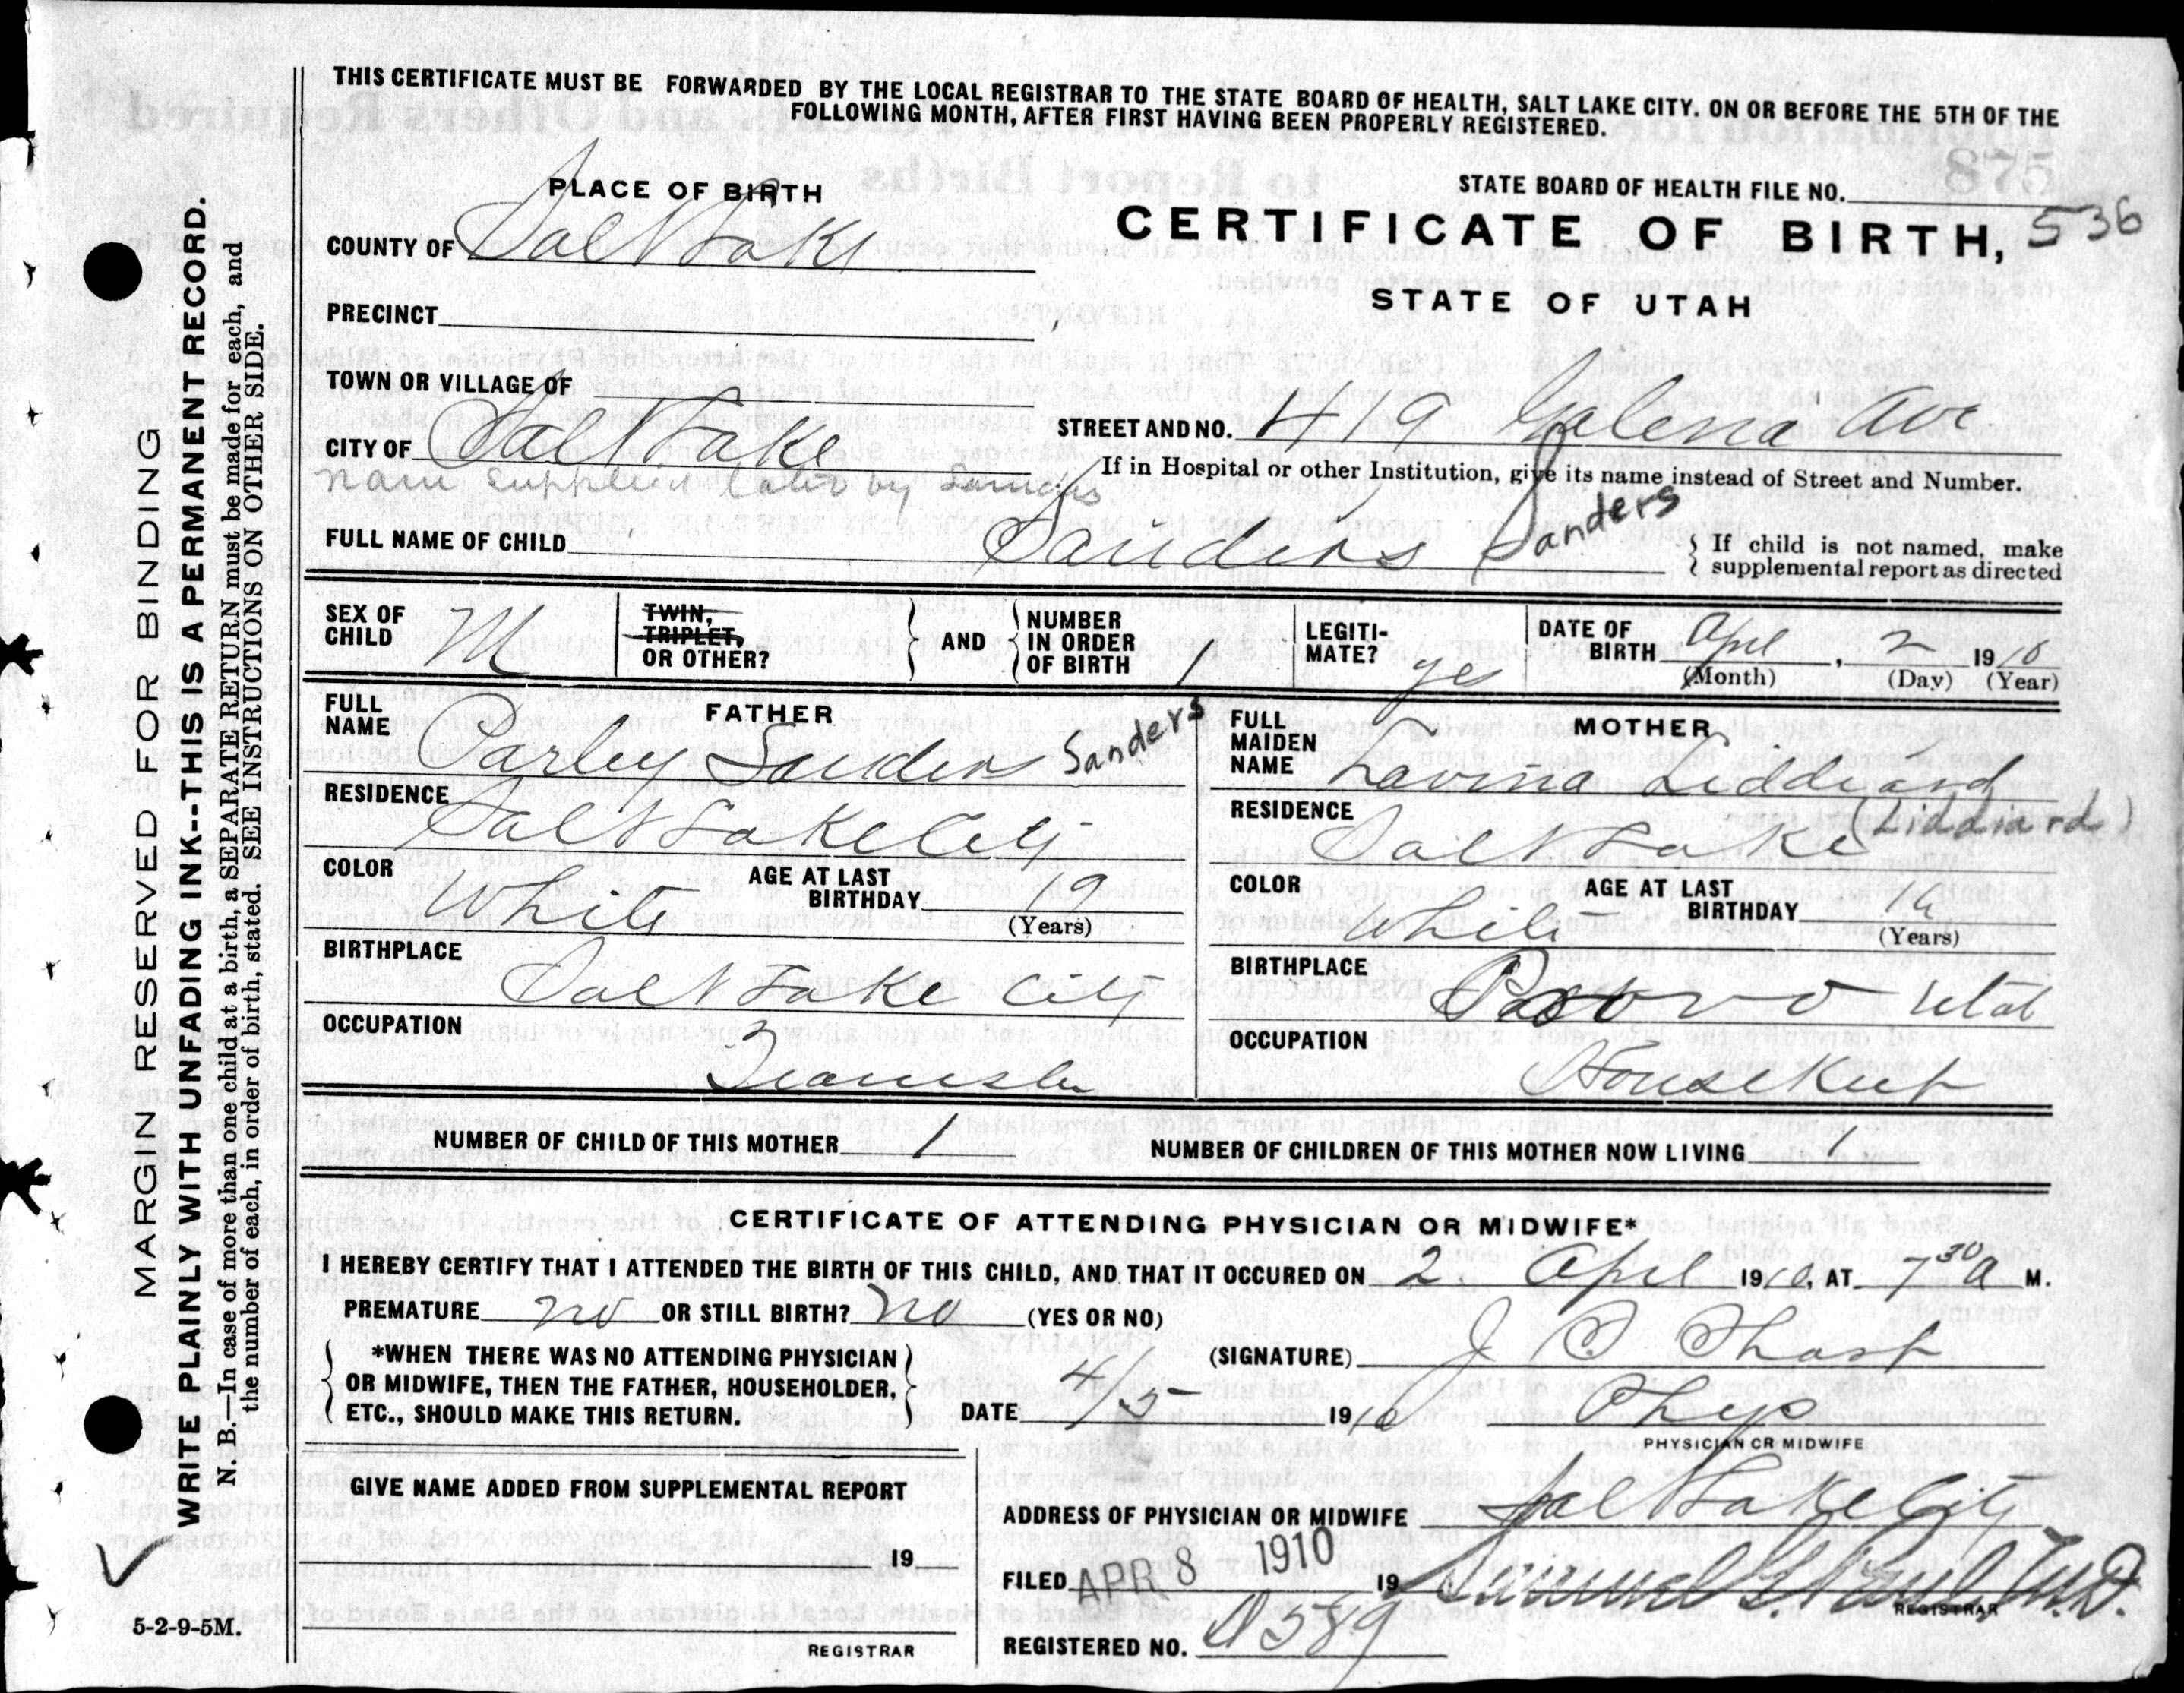 THIS CERTIFICATE MUST BE FORWARDED BY THE LOCAL REGISTRAR TO THE STATE BOARD OF HEALTH, SALT LAKE CITY. ON OR BEFORE THE 5TH OF THE
FOLLOWING MONTH, AFTER FIRST HAVING BEEN PROPERLY REGISTERED.
PLACE OF BIRTH
STATE BOARD OF HEALTH FILE NO.
COUNTY OF Salt Lake
CERTIFICATE OF BIRTH, 536
PRECINCT
STATE OF UTAH
TOWN OR VILLAGE OF
CITY OF Salt Lake
STREET AND NO. 419 Galena Ave
If in Hospital or other Institution, give its name instead of Street and Number.
Name Supplied later by
FULL NAME OF CHILD Sanders Sanders
If child is not named, make
supplemental report as directed
SEX OF CHILD M
TWIN, TRIPLET, OR OTHER?
AND
NUMBER IN ORDER OF BIRTH 1
LEGITI-MATE? yes
DATE OF BIRTH April, 2 1910
(Month) (Day) (Year)
FATHER
FULL NAME Parley Sanders Sanders
RESIDENCE Salt Lake City
COLOR White
AGE AT LAST BIRTHDAY 19
(Years)
BIRTHPLACE
Salt Lake City
OCCUPATION
Teamster
MOTHER
FULL MAIDEN NAME Lavina Liddiard
(Liddiard)
RESIDENCE Salt Lake
COLOR White
AGE AT LAST BIRTHDAY
(Years)
BIRTHPLACE Provo Utah
OCCUPATION
Housekeep
NUMBER OF CHILD OF THIS MOTHER 1
NUMBER OF CHILDREN OF THIS MOTHER NOW LIVING 1
CERTIFICATE OF ATTENDING PHYSICIAN OR MIDWIFE*
I HEREBY CERTIFY THAT I ATTENDED THE BIRTH OF THIS CHILD, AND THAT IT OCCURED ON 2 April 1910, AT 7 30 A M.
PREMATURE no OR STILL BIRTH? no (YES OR NO)
*WHEN THERE WAS NO ATTENDING PHYSICIAN
OR MIDWIFE, THEN THE FATHER, HOUSEHOLDER,
ETC., SHOULD MAKE THIS RETURN.
(SIGNATURE) J
DATE 4/5 1910 Phys
PHYSICIAN OR MIDWIFE
GIVE NAME ADDED FROM SUPPLEMENTAL REPORT
19
REGISTRAR
ADDRESS OF PHYSICIAN OR MIDWIFE Salt Lake City
FILED APR 8 1910 19 Samuel G. Paul M.D.
REGISTRAR
REGISTERED NO. 589
MARGIN RESERVED FOR BINDING
WRITE PLAINLY WITH UNFADING INK--THIS IS A PERMANENT RECORD.
N. B.—In case of more than one child at a birth, a SEPARATE RETURN must be made for each, and
the number of each, in order of birth, stated. SEE INSTRUCTIONS ON OTHER SIDE.
5-2-9-5M.